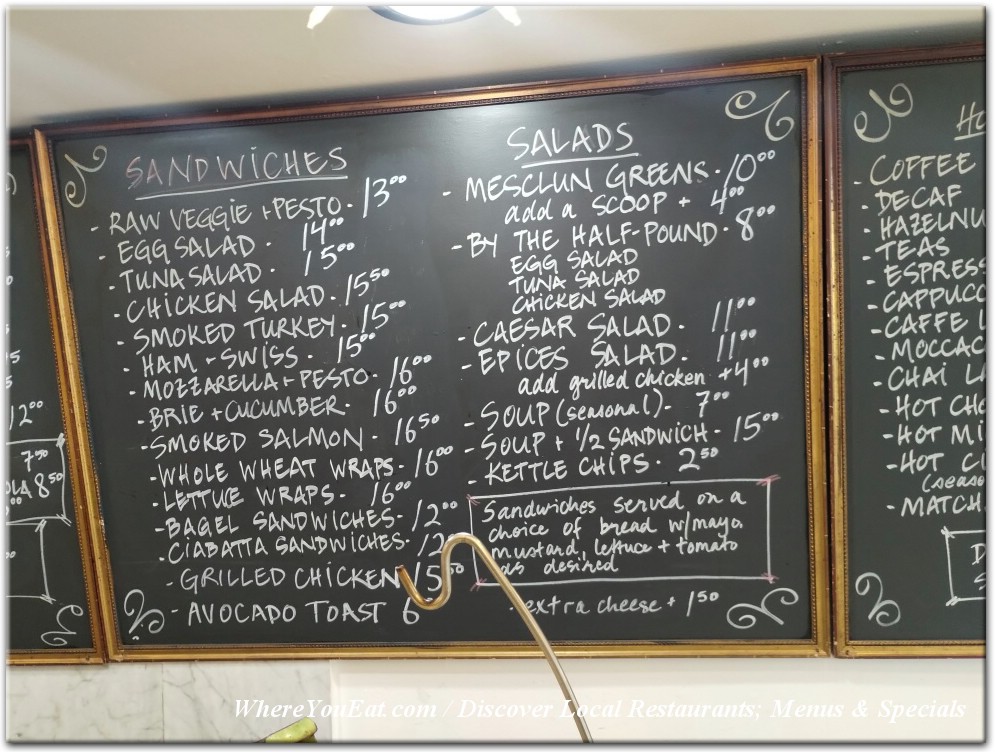 SANDWICHES
- RAW VEGGIE + PESTO - 13⁰⁰
- EGG SALAD - 14⁰⁰
- TUNA SALAD - 15⁰⁰
- CHICKEN SALAD - 15⁵⁰
- SMOKED TURKEY - 15⁰⁰
- HAM + SWISS - 15⁰⁰
- MOZZARELLA + PESTO - 16⁰⁰
- BRIE + CUCUMBER - 16⁰⁰
- SMOKED SALMON - 16⁵⁰
- WHOLE WHEAT WRAPS - 16⁰⁰
- LETTUCE WRAPS - 16⁰⁰
- BAGEL SANDWICHES - 12⁰⁰
- CIABATTA SANDWICHES - 12
- GRILLED CHICKEN 15⁵⁰
- AVOCADO TOAST 6
SALADS
- MESCLUN GREENS - 10⁰⁰
add a SCOOP + 4⁰⁰
- BY THE HALF-POUND - 8⁰⁰
EGG SALAD
TUNA SALAD
CHICKEN SALAD
- CAESAR SALAD - 11⁰⁰
- EPICES SALAD - 11⁰⁰
add grilled chicken +4⁰⁰
- SOUP (seasonal) - 7⁰⁰
- SOUP + 1/2 SANDWICH - 15⁰⁰
- KETTLE CHIPS - 2⁵⁰
Sandwiches served on a
choice of bread w/mayo,
mustard, lettuce + tomato
as desired
- extra cheese + 1⁵⁰
- COFFEE
- DECAF
- HAZELNU
- TEAS
- ESPRESS
- CAPPUCC
- CAFFE L
- MOCCAC
- CHAI LA
- HOT CHO
- HOT MI
- HOT C
(seaso
- MATCH
12⁰⁰
7⁵⁰
OLA 8⁵⁰
WhereYouEat.com / Discover Local Restaurants; Menus & Specials